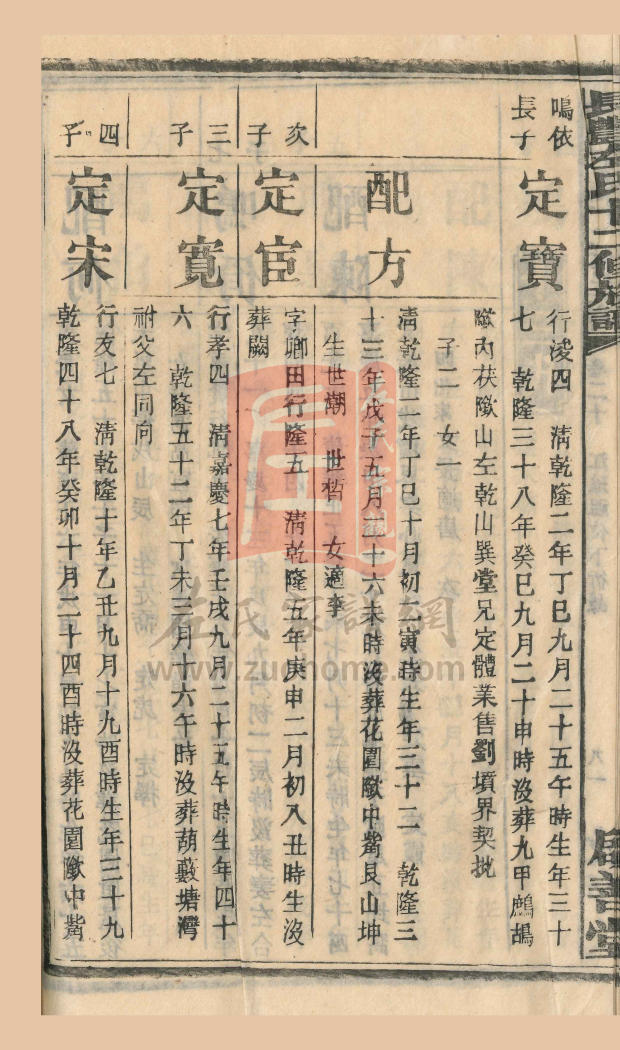 長豐左氏十二修族譜
啟善堂
鳴依
長子
定寶
行淩四 清乾隆二年丁巳九月二十五午時生年三十
七 乾隆三十八年癸巳九月二十申時沒葬九甲鷓鴣
墩內茯墩山左乾山巽堂兄定體業售劉墳界契批
子二 女一
配方
清乾隆二年丁巳十月初二寅時生年三十二 乾隆三
十三年戊子五月二十六未時沒葬花園墩中嘴艮山坤
生世潮 世晳 女適李
次子
定宦
字卿田行隆五 清乾隆五年庚申二月初八丑時生沒
葬闕
三子
定寬
行孝四 清嘉慶七年壬戌九月二十五午時生年四十
六 乾隆五十二年丁未三月十六午時沒葬葫蘆塘灣
祔父左同向
四子
定宋
行友七 清乾隆十年乙丑九月十九酉時生年三十九
乾隆四十八年癸卯十月二十四酉時沒葬花園墩中嘴
左氏家譜網
www.zuohome.com